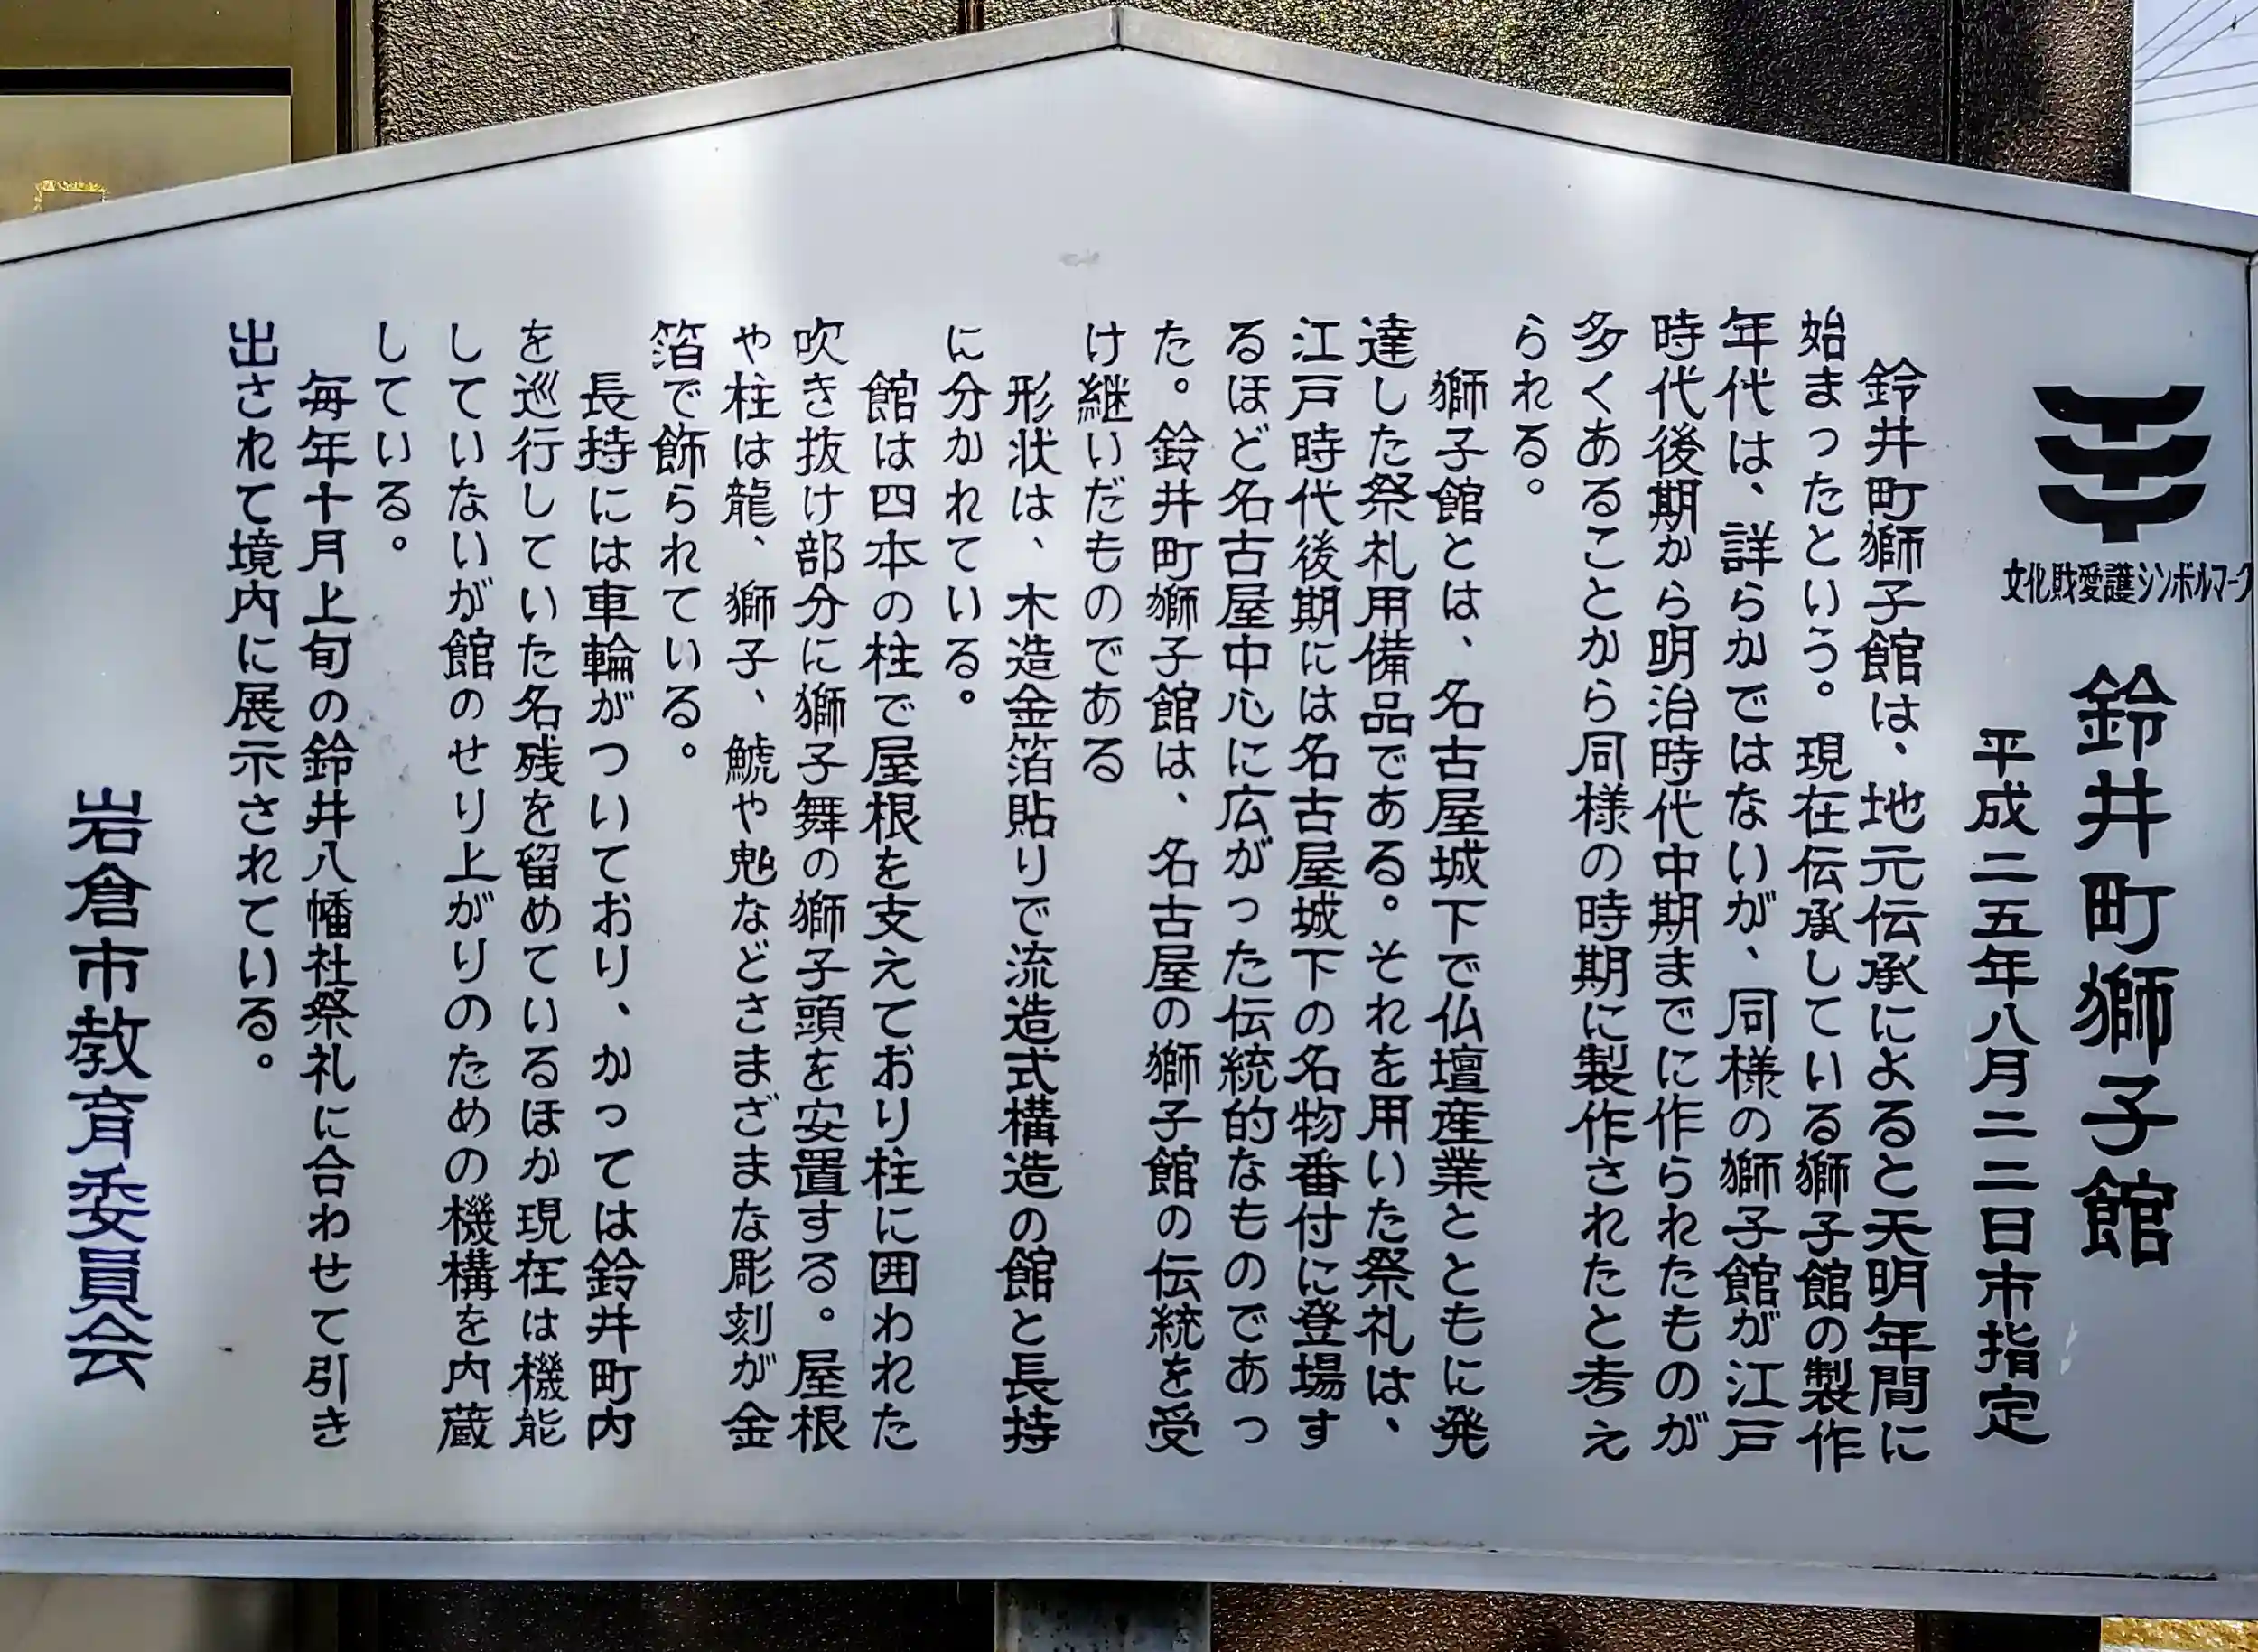 文化財愛護シンボルマーク
鈴井町獅子館
平成二五年八月二二日市指定
鈴井町獅子館は、地元伝承によると天明年間に
始まったという。現在伝承している獅子館の製作
年代は、詳らかではないが、同様の獅子館が江戸
時代後期から明治時代中期までに作られたものが
多くあることから同様の時期に製作されたと考え
られる。
獅子館とは、名古屋城下で仏壇産業とともに発
達した祭礼用備品である。それを用いた祭礼は、
江戸時代後期には名古屋城下の名物番付に登場す
るほど名古屋中心に広がった伝統的なものであっ
た。鈴井町獅子館は、名古屋の獅子館の伝統を受
け継いだものである
形状は、木造金箔貼りで流造式構造の館と長持
に分かれている。
館は四本の柱で屋根を支えており柱に囲われた
吹き抜け部分に獅子舞の獅子頭を安置する。屋根
や柱は龍、獅子、鯱やなどさまざまな彫刻が金
箔で飾られている。
長持には車輪がついており、かっては鈴井町内
を巡行していた名残を留めているほか現在は機能
していないが館のせり上がりのための機構を内蔵
している。
毎年十月上旬の鈴井八幡社祭礼に合わせて引き
出されて境内に展示されている。
岩倉市教育委員会